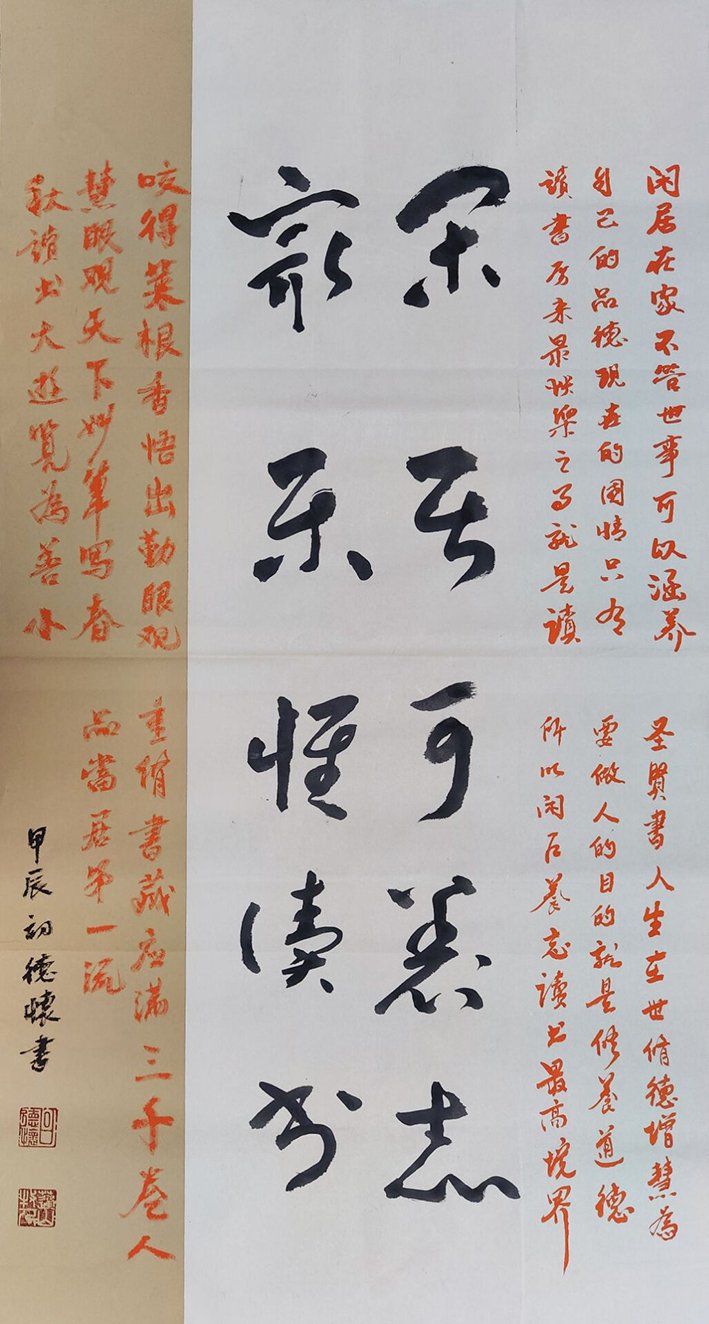 闲居在家不管世事可以涵养
自己的品德现在的国情只有
讀書历来最快樂之事就是讀
圣賢書人生在世脩德增慧為
要做人的目的就是修養道德
所以闲居養志讀书最高境界
闲居可養志
最乐惟读书
咬得菜根香悟出勤眼观
慧眼观天下妙筆写春
秋讀书大遊覽為善小
重脩書藏应满三千卷人
品當居第一流
甲辰初德懷書